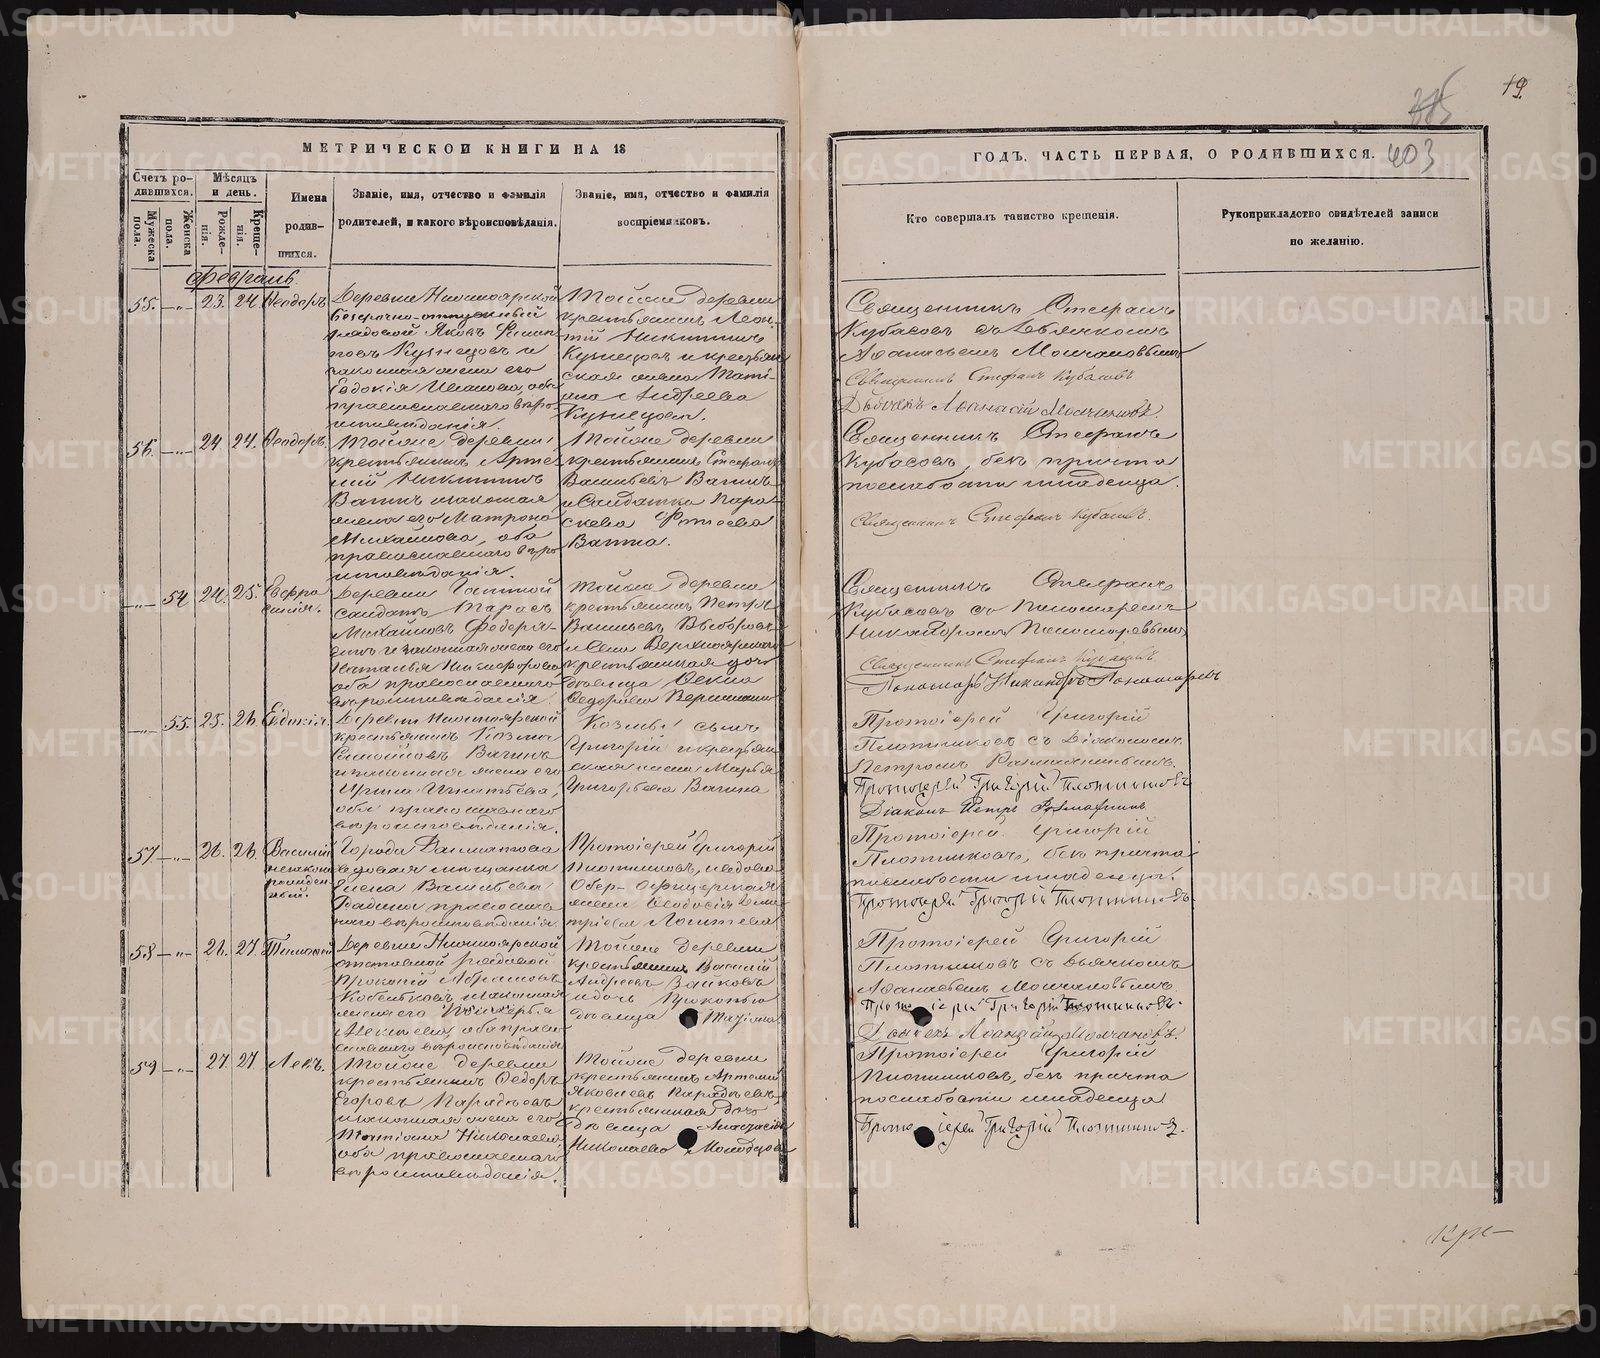 МЕТРИЧЕСКОЙ КНИГИ НА 18
Счетъ ро-
дившихся.
Мужеска пола.
Женска пола.
Мѣсяцъ
и день.
Рожде-
нія.
Креще-
нія.
Имена
родив-
шихся.
Званіе, имя, отчество и фамилія
родителей, и какого вѣроисповѣданія.
Званіе, имя, отчество и фамилія
воспріемниковъ.
Февраль.
55. 23. 24. Ѳеодоръ.
Деревни Нижноярской
безсрочно-отпускной
рядовой Яковъ Филип-
повъ Кузнецовъ и
законная жена его
Евдокія Иванова, оба
православнаго вѣро-
исповѣданія.
Тойже деревни
крестьянинъ Леон-
тій Никитинъ
Кузнецовъ и крестьян-
ская жена
Андреева
Кузнецова.
56. 24. 24. Ѳеодоръ.
Тойже деревни
крестьянинъ Арте-
мій Никитинъ
Вагинъ и законная
жена его Матрона
Михайлова, оба
православнаго вѣро-
исповѣданія.
Тойже деревни
крестьянинъ Стефанъ
Васильевъ Вагинъ
и солдатка Пара-
скева Фотеева
Вагина.
54. 24. 25. Евфро-
синія.
Деревни
солдатъ Тарасъ
Михайловъ Федоря-
кинъ и законная жена его
Наталья Никифорова
оба православнаго
вѣроисповѣданія.
Тойже деревни
крестьянинъ Петръ
Васильевъ Выборовъ
и села Верхноярскаго
крестьянская дочь
дѣвица Ѳекла
Ѳедорова
55. 25. 26. Евдокія.
Деревни Нижноярской
крестьянинъ Козма
Самойловъ Вагинъ
и законная жена его
Ирина Игнатьева,
оба православнаго
вѣроисповѣданія.
Козмы сынъ
Григорій и крестьян-
ская жена Марья
Григорьева Вагина
57. 26. 26. Василій
незаконно
рожден-
ный.
Города Далматова
вдовая мѣщанка
Елена Васильева
православ-
наго вѣроисповѣданія.
Протоіерей Григорій
Плотниковъ, и вдова
Обер-офицерская
жена Ѳеодосія Дми-
тріева
58. 26. 27. Тимоѳей
Деревни Нижноярской
отставной рядовой
Прокопій Абрамовъ
и законная
жена его
Алексѣева, оба право-
славнаго вѣроисповѣданія
Тойже деревни
крестьянинъ Василій
Андреевъ Зайковъ
и дочь Прокопья
дѣвица Татіана
59. 27. 27. Левъ.
Тойже деревни
крестьянинъ Ѳедоръ
Егоровъ Парадѣевъ
и законная жена его
Татіана Николаева,
оба православнаго
вѣроисповѣданія.
Тойже деревни
крестьянинъ Артемій
Яковлевъ Парадѣевъ,
крестьянская дочь
дѣвица Анастасія
Николаева Молодцова
19.
403
ГОДЪ. ЧАСТЬ ПЕРВАЯ, О РОДИВШИХСЯ.
Кто совершалъ таинство крещенія.
Рукоприкладство свидѣтелей записи
по желанію.
Священникъ Стефанъ
Кубасовъ съ Дьячкомъ
Аѳанасьемъ Молчановымъ
Священникъ Стефанъ Кубасовъ
Дьячекъ Аѳанасій Молчановъ.
Священникъ Стефанъ
Кубасовъ, безъ причта
по слабости младенца.
Священникъ Стефанъ Кубасовъ.
Священникъ Стефанъ
Кубасовъ съ Пономаремъ
Никандромъ Пономаревымъ
Священникъ Стефанъ Кубасовъ
Пономарь Никандръ Пономаревъ
Протоіерей Григорій
Плотниковъ съ Діакономъ
Петромъ
Протоіерей Григорій Плотниковъ
Діаконъ Петръ
Протоіерей Григорій
Плотниковъ, безъ причта
по слабости младенца.
Протоіерей Григорій Плотниковъ
Протоіерей Григорій
Плотниковъ съ Дьячкомъ
Аѳанасьемъ Молчановымъ
Протоіерей Григорій Плотниковъ.
Дьячекъ Молчановъ.
Протоіерей Григорій
Плотниковъ, безъ причта
по слабости младенца
Протоіерей Григорій Плотниковъ.
METRIKI.GASO-URAL.RU